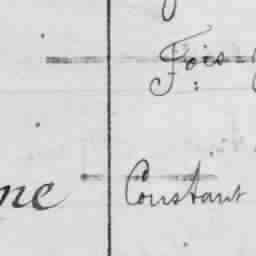 Fois
ne Constant